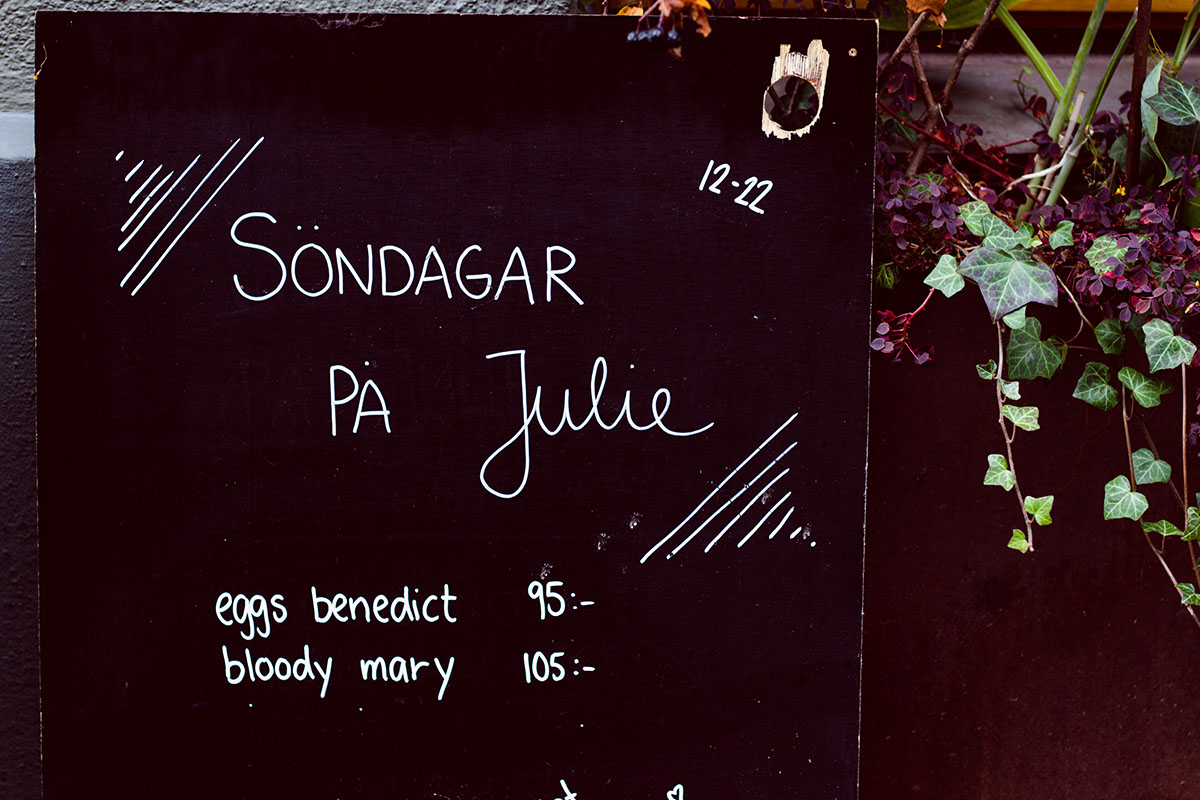 12-22
SÖNDAGAR
PÅ Julie
eggs benedict 95:-
bloody mary 105:-